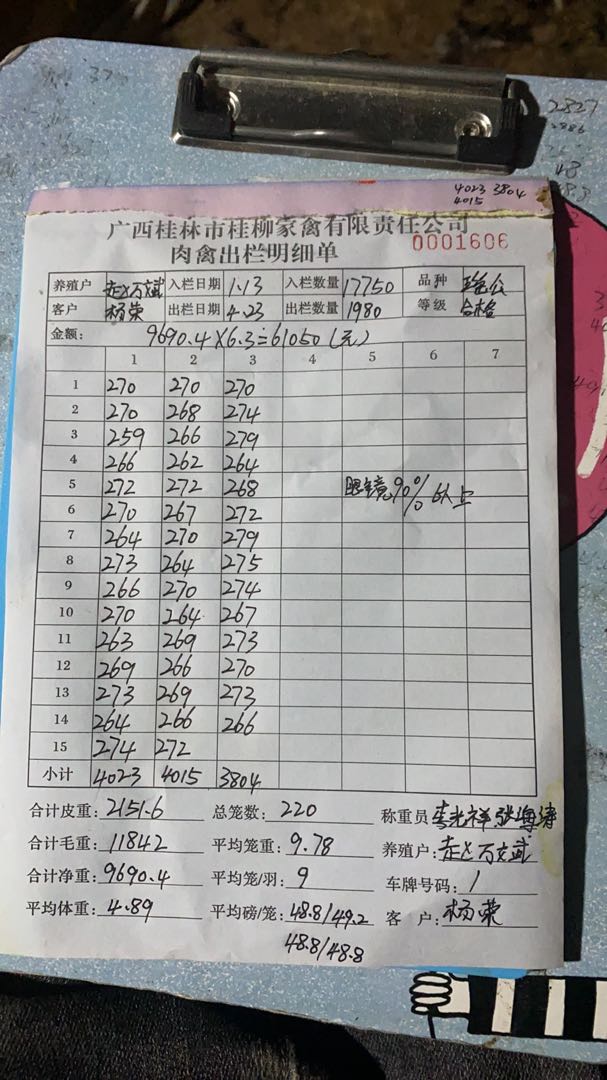 4023 3804
4015
广西桂林市桂柳家禽有限责任公司
肉禽出栏明细单 0001606
养殖户 赵万斌 入栏日期 1.13 入栏数量 17750 品种
客户 杨荣 出栏日期 4.23 出栏数量 1980 等级 合格
金额: 9690.4×6.3=61050(元)
1 2 3 4 5 6 7
1 270 270 270
2 270 268 274
3 259 266 279
4 266 262 264
5 272 272 268 眼镜90%以上
6 270 267 272
7 264 270 279
8 273 264 275
9 266 270 274
10 270 264 267
11 263 269 273
12 269 266 270
13 273 269 273
14 264 266 266
15 274 272
小计 4023 4015 3804
合计皮重: 2151.6 总笼数: 220 称重员 李光祥 张海涛
合计毛重: 11842 平均笼重: 9.78 养殖户: 赵万斌
合计净重: 9690.4 平均笼/羽: 9 车牌号码: 1
平均体重: 4.89 平均磅/笼: 48.8/49.2 客 户: 杨荣
48.8/48.8